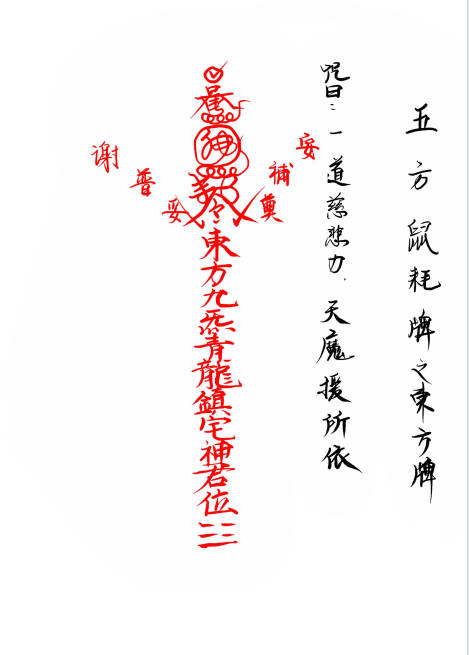 五方鼠耗牌之東方牌
咒曰：一道慈悲力．天魔援所依
安補奠
東方九炁青龍鎮宅神君位
謝普安